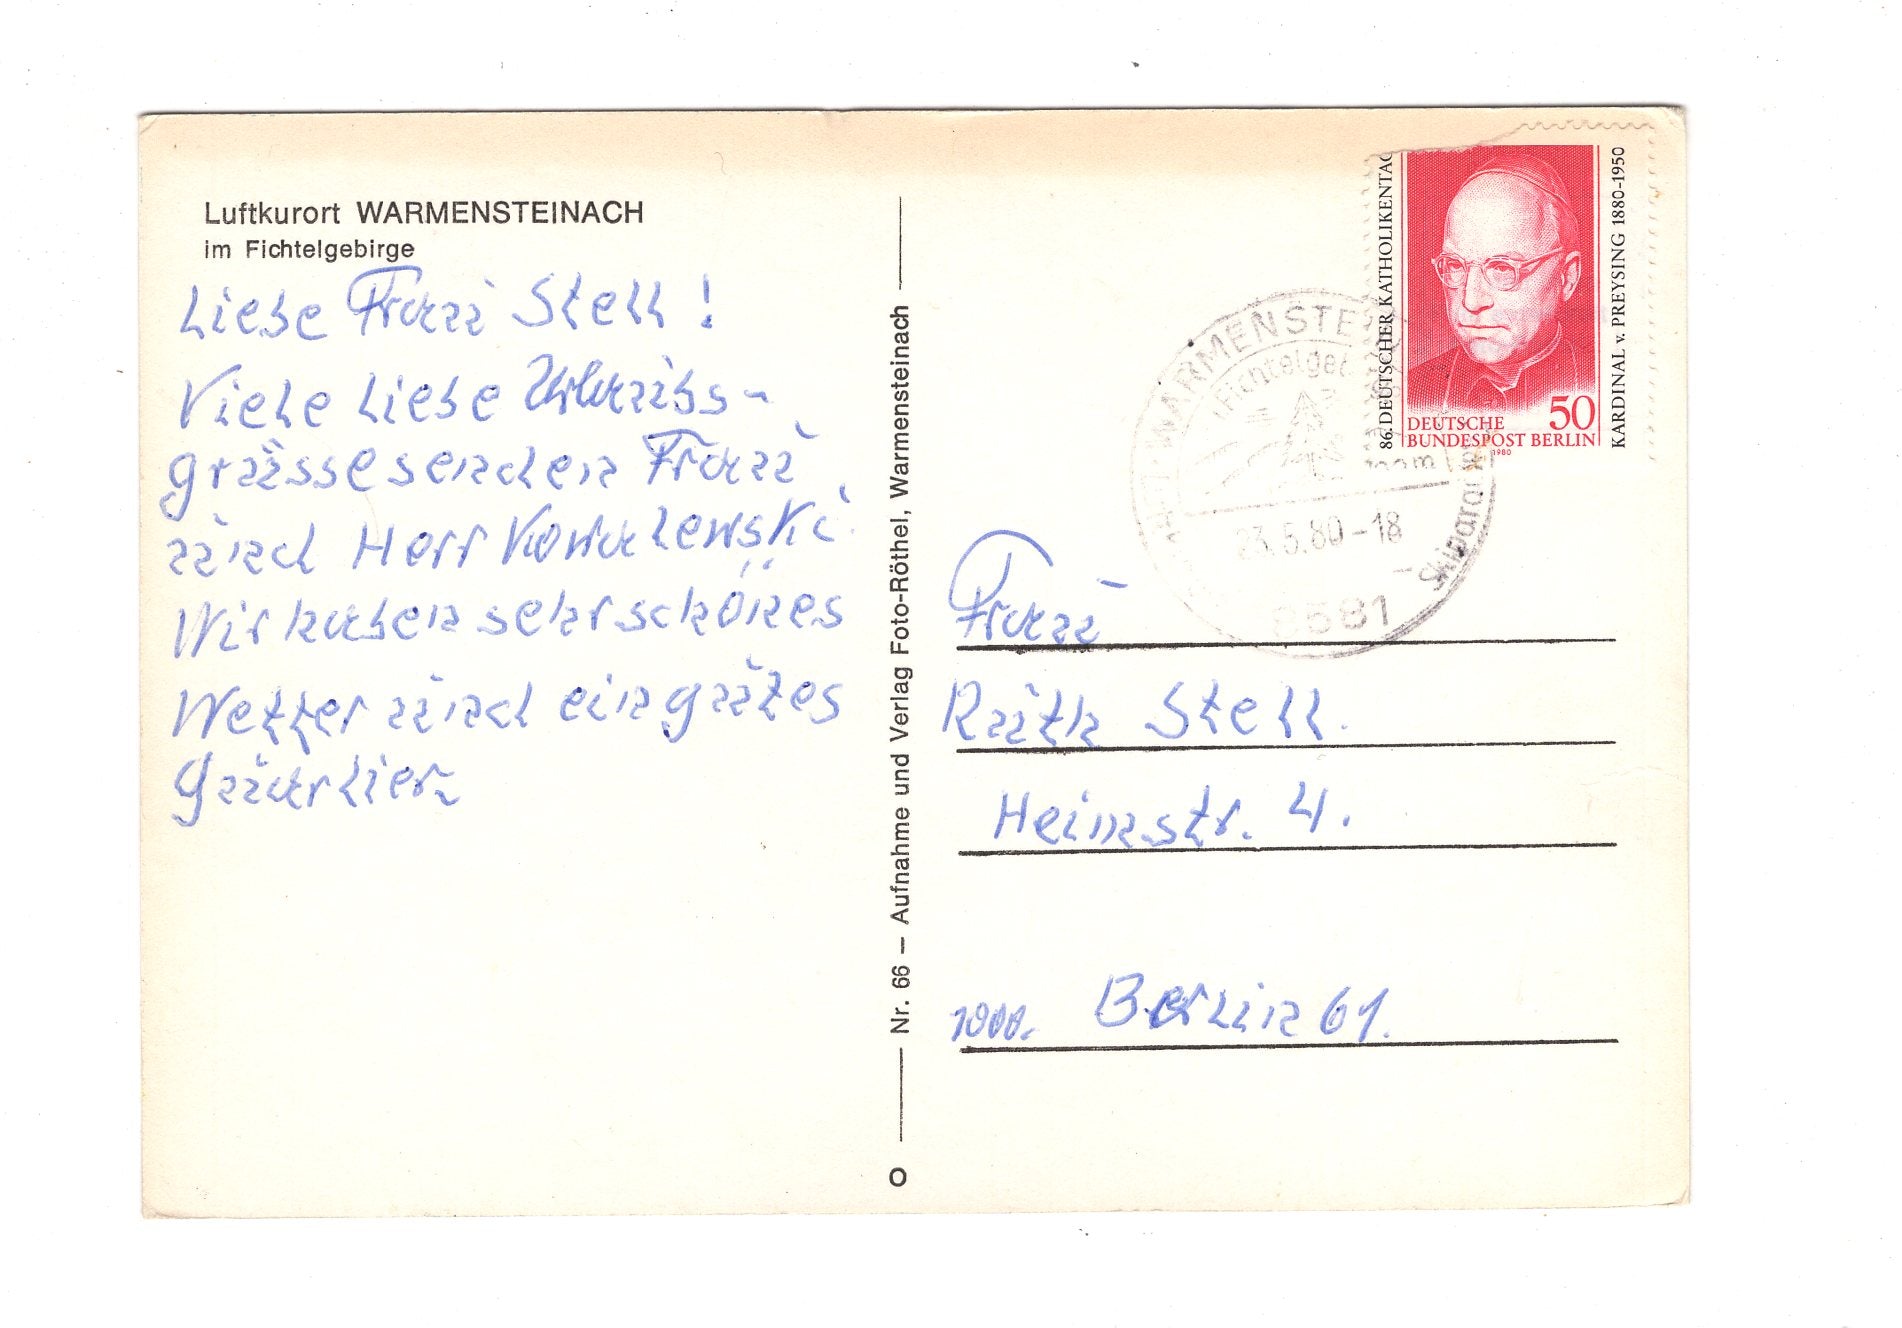 Luftkurort WARMENSTEINACH
im Fichtelgebirge
Liebe Frau Stell!
Viele liebe Urlaubs-
grüsse senden Frau
und Herr Kowalewski.
Wir haben sehr schönes
Wetter und ein gutes
Quartier.
Nr. 66 — Aufnahme und Verlag Foto-Röthel, Warmensteinach
O
86. DEUTSCHER KATHOLIKENTAG
KARDINAL v. PREYSING 1880-1950
50
DEUTSCHE
BUNDESPOST BERLIN
1980
WARMENSTE
Fichtelgeb
23.5.80-18
8581
Frau
Ruth Stell.
Heimstr. 4.
1000. Berlin 61.